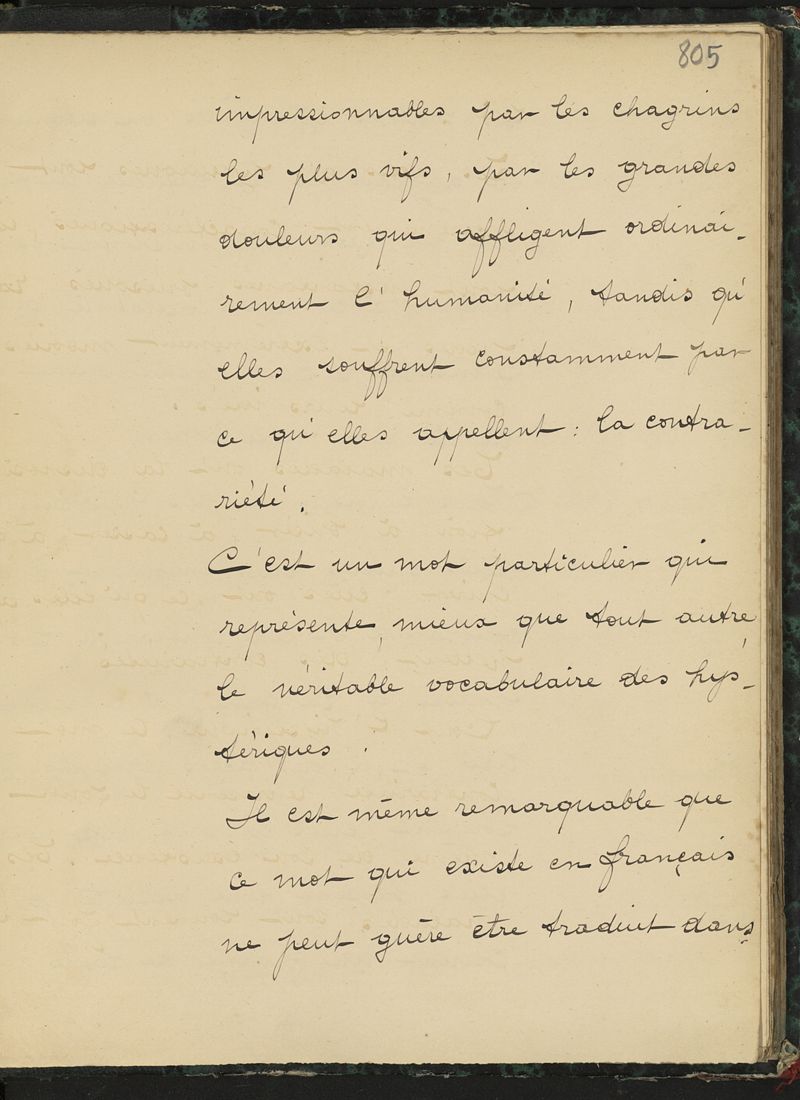 805
impressionnables par les chagrins
les plus vifs, par les grandes
douleurs qui affligent ordinai-
rement l'humanité, tandis qu'
elles souffrent constamment par
ce qu'elles appellent : la contra-
riété.
C'est un mot particulier qui
représente, mieux que tout autre,
le véritable vocabulaire des hys-
tériques.
Il est même remarquable que
ce mot qui existe en français
ne peut guère être traduit dans